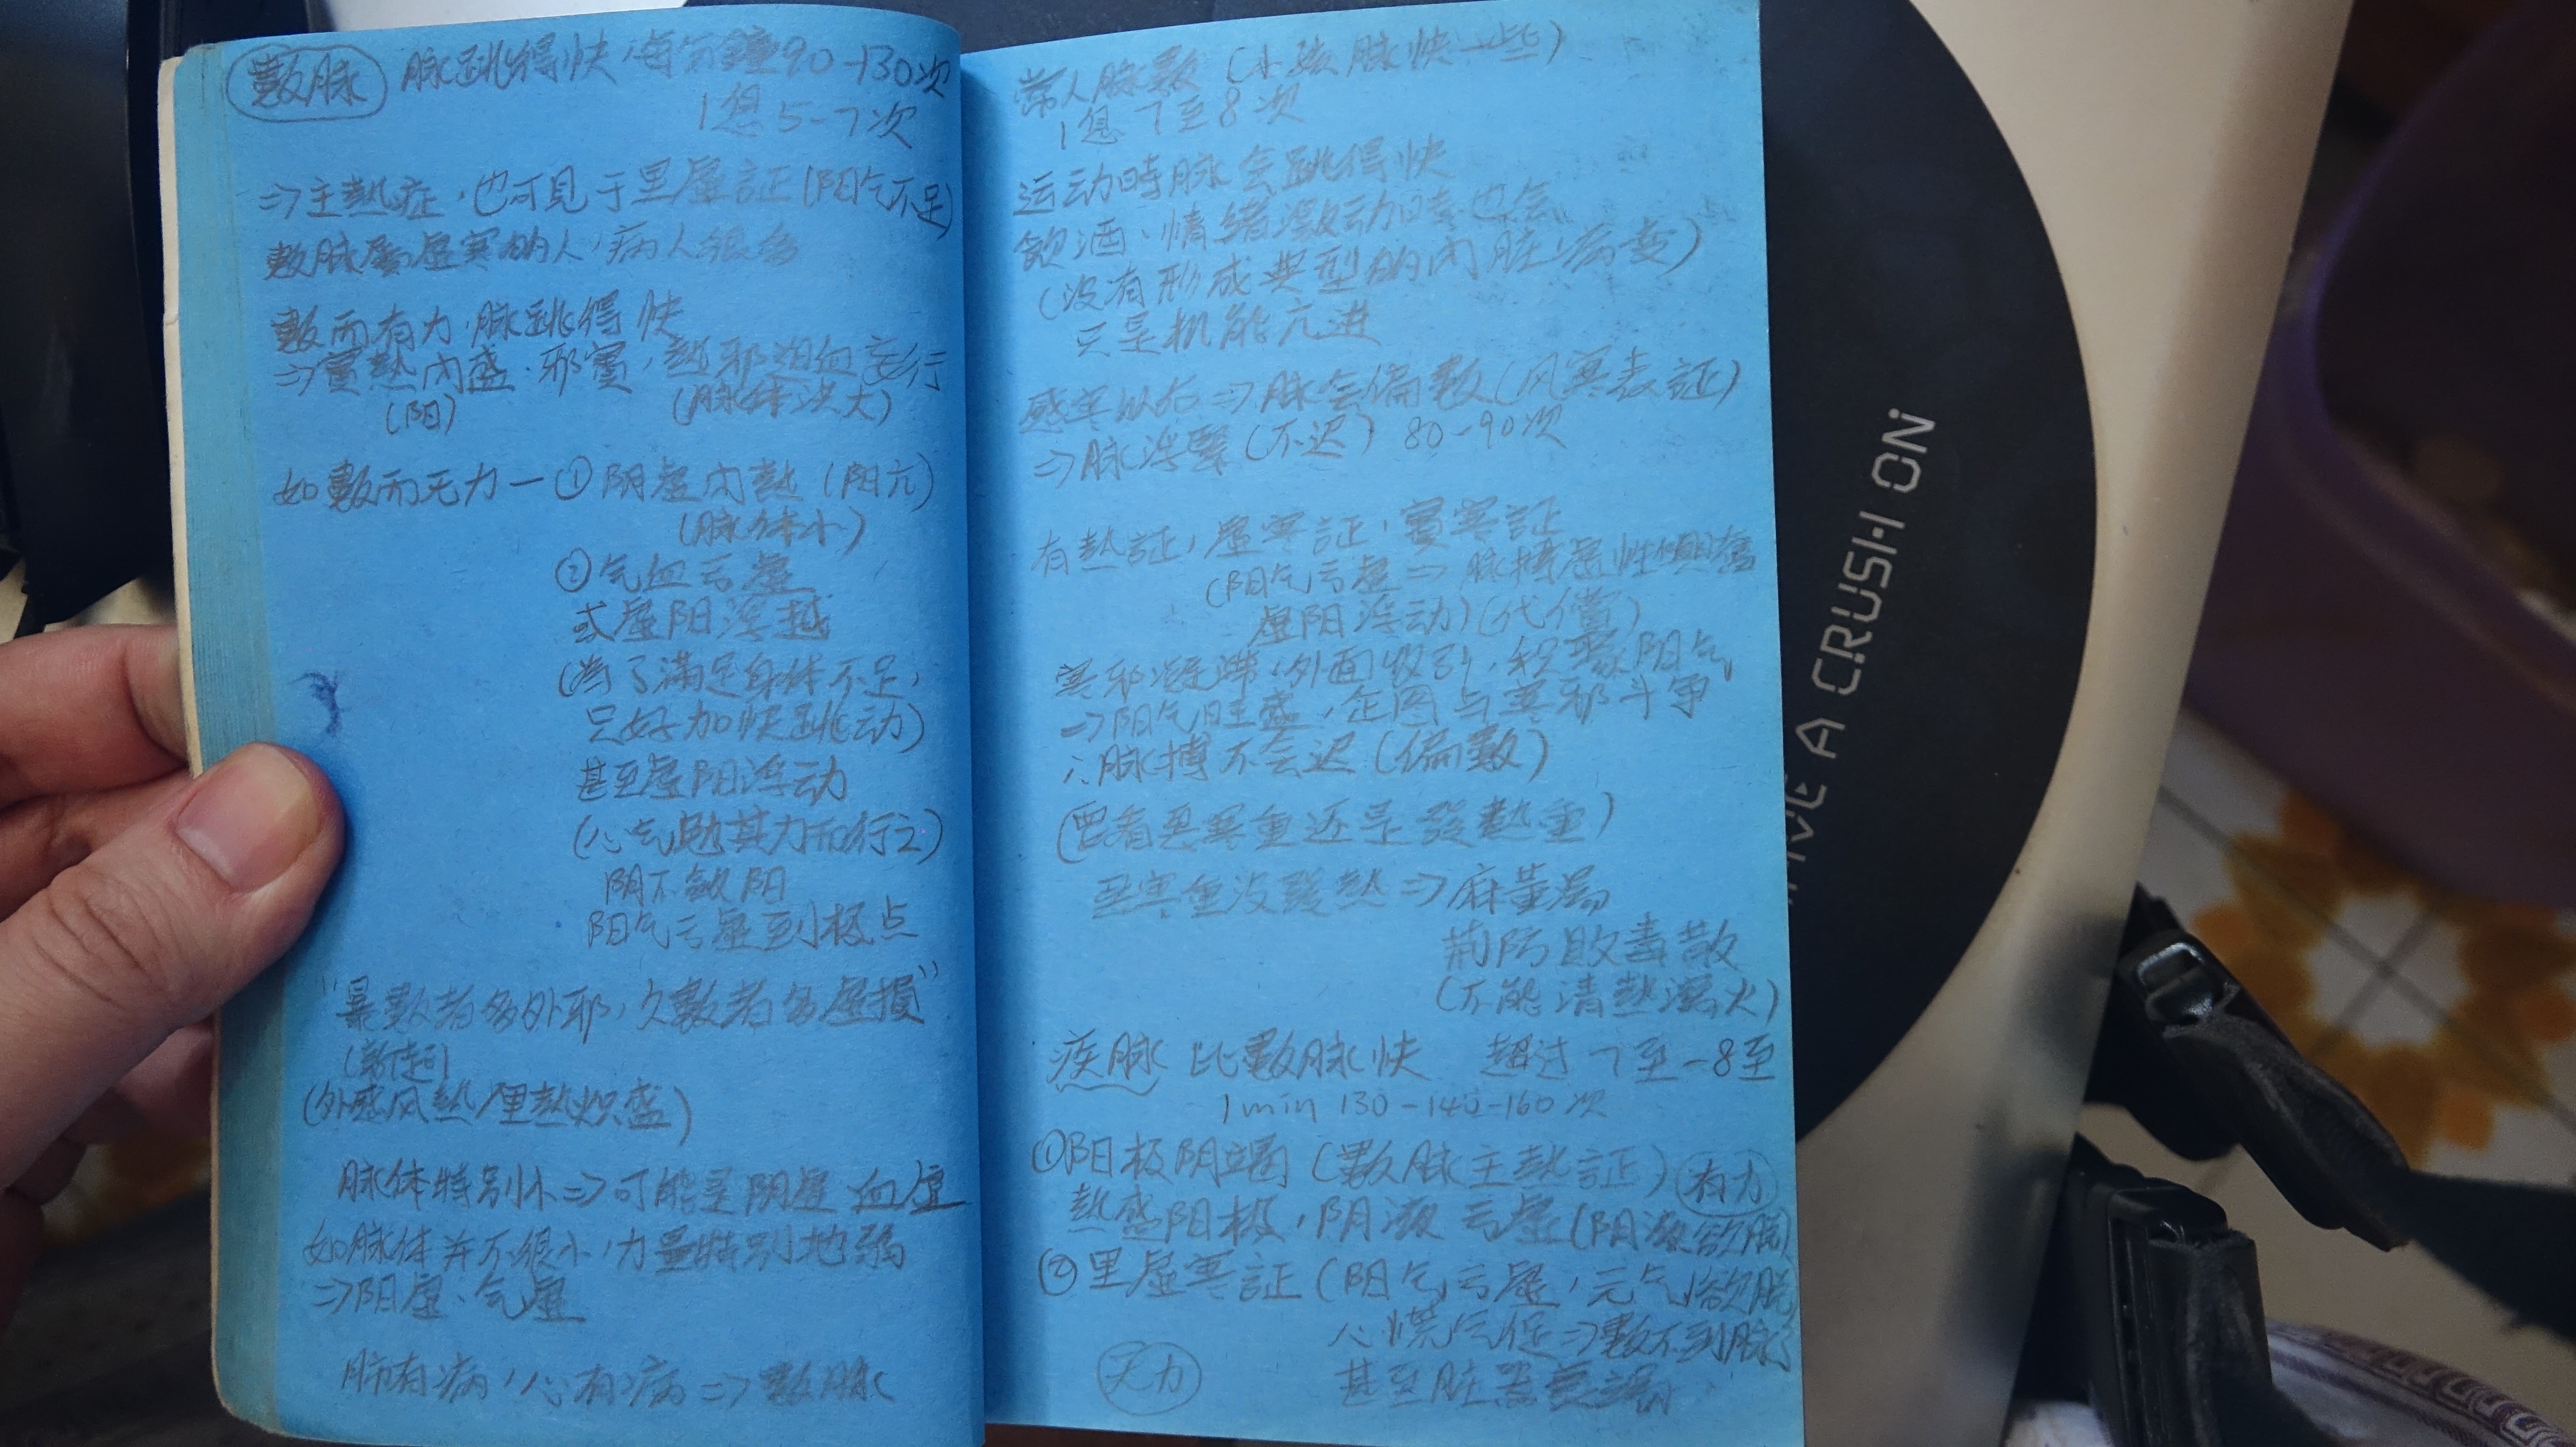 數脉 脉跳得快,每分鐘90-130次
1息5-7次
⇒主熱症,也可见于里虚証(阳气不足)
數脉屬虚寒的人,病人很多
數而有力,脉跳得快
⇒實熱内盛.邪實,熱邪迫血妄行
(阳) (脉体洪大)
如數而无力一①阴虚内熱(阳亢)
(脉体小)
②气血亏虚
或虚阳浮越
(為了滿足身体不足,
只好加快跳动)
甚至虚阳浮动
(心气勉其力而行之)
阴不斂阳
阳气亏虚到极点
"暴數者多外邪,久數者多虚損"
(新起)
(外感风熱/里熱炽盛)
脉体特别小⇒可能是阴虚 血虚
如脉体并不很小,力量特别地弱
⇒阳虚、气虚
肺有病,心有病⇒數脉
常人脉數(小孩脉快一些)
1息7至8次
运动時脉会跳得快
飲酒、情绪激动時也会
(沒有形成典型的内脏病变)
只是机能亢进
感寒以后⇒脉会偏數(风寒表証)
⇒脉浮緊(不迟) 80-90次
有熱証,虚寒証,實寒証
(阳气亏虚⇒脉搏虚性興奮
虚阳浮动)(代償)
寒邪凝滯,外面收引,积聚阳气
⇒阳气旺盛,企图与寒邪斗争
∴脉搏不会迟(偏數)
(要看恶寒重还是發熱重)
恶寒重沒發熱⇒麻黄湯
荊防敗毒散
(不能清熱瀉火)
疾脉 比數脉快 超过7至-8至
1min 130-140-160次
①阳极阴竭(數脉主熱証) 有力
熱盛阳极,阴液亏虚(阴液欲脱)
②里虚寒証(阳气亏虚,元气欲脱
心慌气促⇒數不到脉了
无力 甚至脏器衰竭
HAVE A CRUSH ON